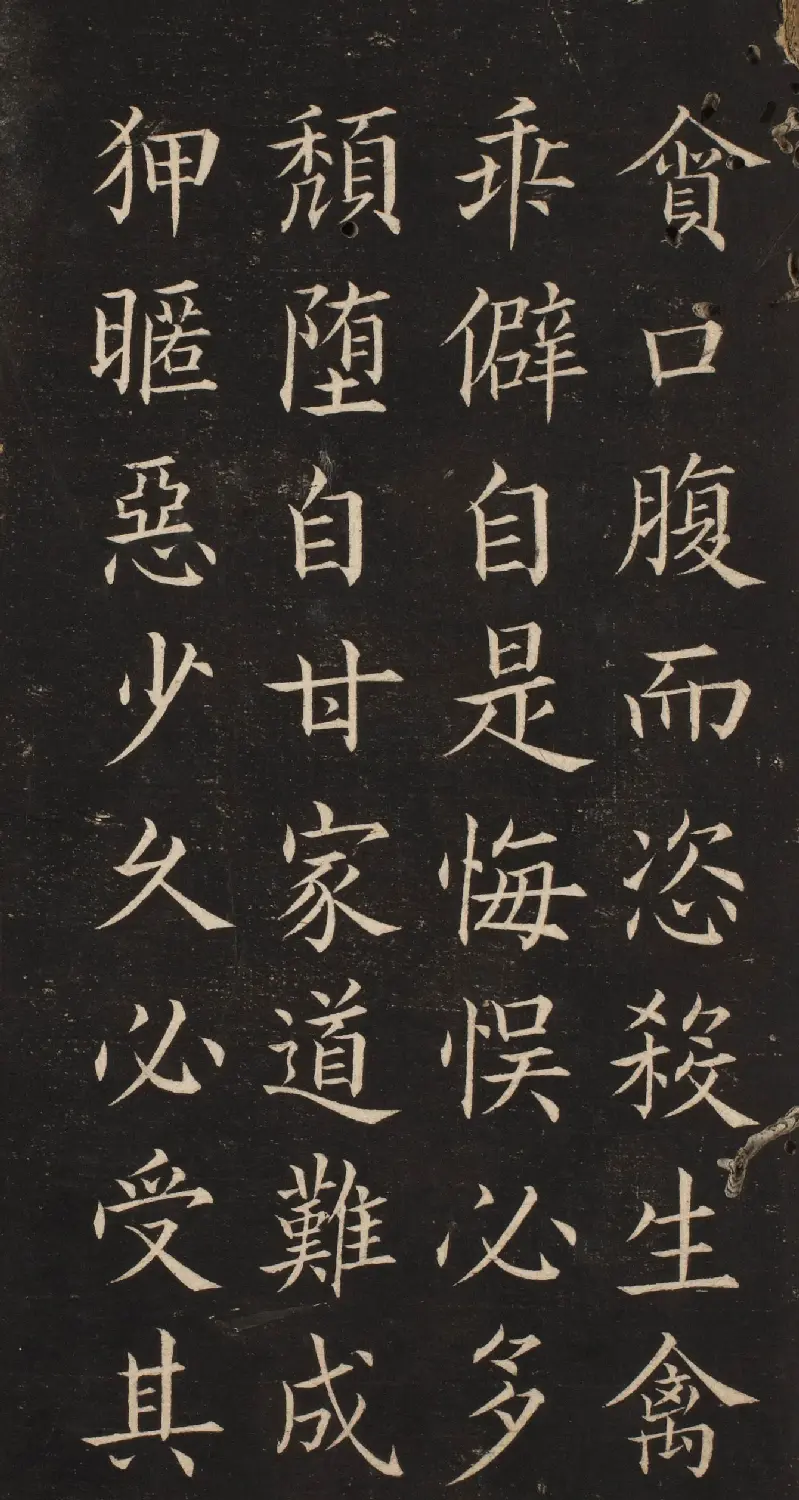 貪口腹而恣殺生禽
乖僻自是悔悞必多
頽堕自甘家道難成
狎暱惡少久必受其